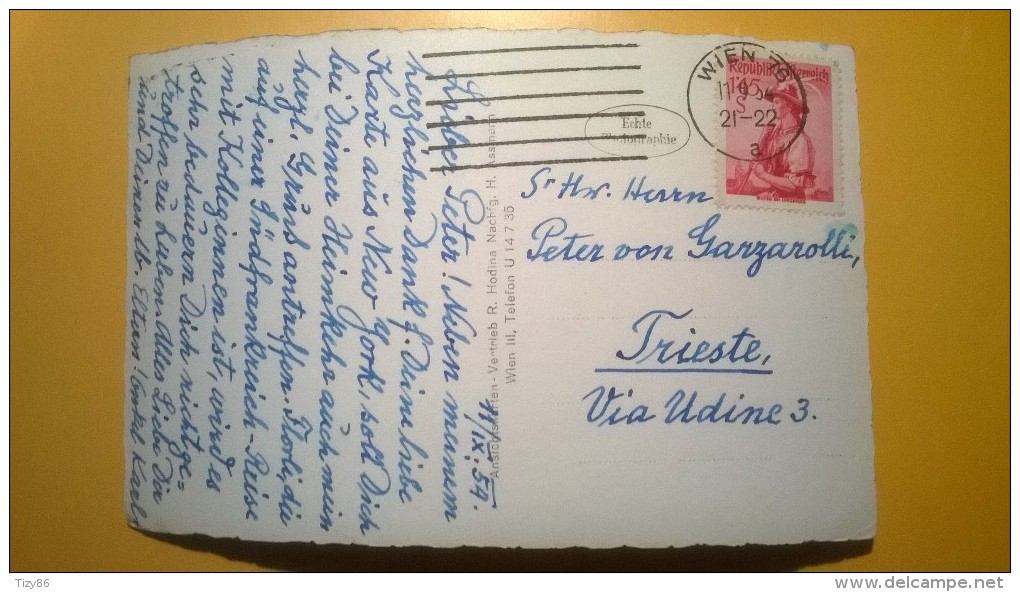 11/IX. 54.
Lieber Peter! Neben meinem
herzlichen Dank f. Deine liebe
Karte aus New York, soll Dich
bei Deiner Heimkehr auch mein
herzl. Gruß antreffen. Flodi, die
auf einer Südfrankreich-Reise
mit Kolleginnen ist, wird es
sehr bedauern Dich nicht ge-
troffen zu haben. Alles Liebe Dir
und Deinen lb. Eltern! Onkel Karl
Ansichtskarten-Vertrieb R. Hodina Nachfg. H. Assmann
Wien III, Telefon U 14 7 35
Echte
Photographie
WIEN 76
11.9.54
21-22
a
Republik Österreich
1'45
S
Sr Hw. Herrn
Peter von Garzarolli,
Trieste,
Via Udine 3.
Tizy86
delcampe.net